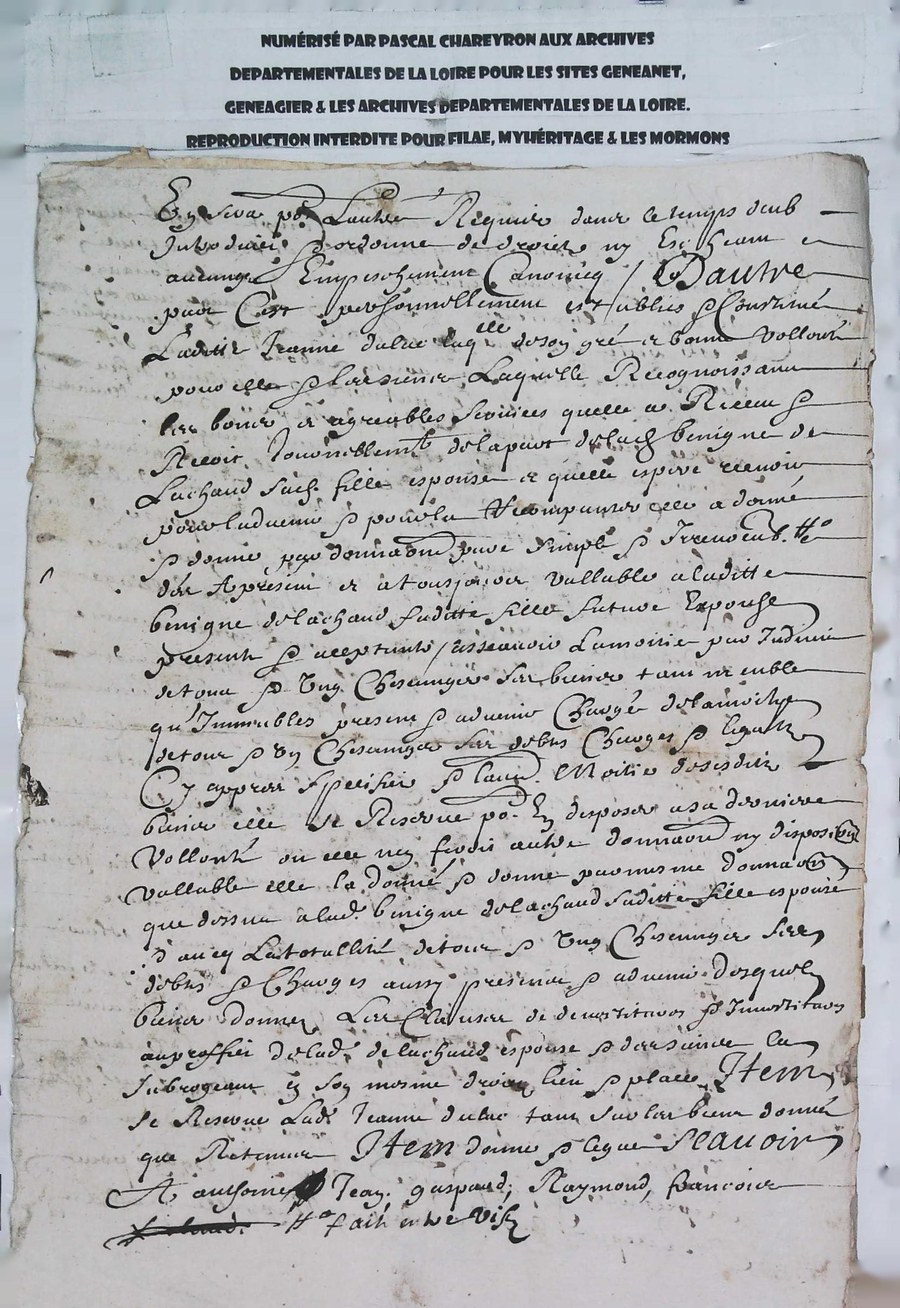 NUMÉRISÉ PAR PASCAL CHAREYRON AUX ARCHIVES
DEPARTEMENTALES DE LA LOIRE POUR LES SITES GENEANET,
GENEAGIER & LES ARCHIVES DEPARTEMENTALES DE LA LOIRE.
REPRODUCTION INTERDITE POUR FILAE, MYHÉRITAGE & LES MORMONS
sera Lautre Requis dans le temps deub
ordonné de droict ny
aucungz Empeschement Canonicq / Dautre
part Cest personnellement establies & Constitué
Laditte Jeanne dulac laqlle de son gré et bonne vollonté
pour elle & les siens Laquelle Recognoissant
les bons et agreables services quelle a Receu &
Recoit Journellemt de la part de lad benigne de
Lachaud sad fille espouse et quelle espere recevoir
pour ladvenir & pour la Recompanser elle a donné
& donne par donnaon pure simple & Irrevocable
des A present et a tousjours vallable a laditte
benigne delachaud saditte fille future Espouse
presente & acceptante / assavoir Lamoitié par Indivis
de tous & Ung Chescungs ses biens tant meuble
qu'Immeubles presens & advenir Chargée delamoitye
de tous & Ung Chescungs ses debtes Charges & legatz
Cy appres speciffiés & Lautre Moitié desesdits
biens elle se Reserve po. En disposer a sa derniere
Vollonté ou elle ny feroit autre donnaon ny disposion
vallable elle la donné & donne par mesme donnaon
que dessus a lad. benigne delachaud saditte fille espouse
avecq Latotallité de tous & Ung Chescungs ses
debtes & Charges aussy presens & advenir desquelz
biens donnez Les Clauses de devestitures & Investitures
au proffict de lad. de lachaud espouse & des siens la
subrogeant en son mesme droict lieu & place Item
se Reserve Lad. Jeanne dulac tant sur les biens donnés
que Retenus Item donne & legue scavoir
A anthoine Jean, gaspard, Raymond, francois
fait